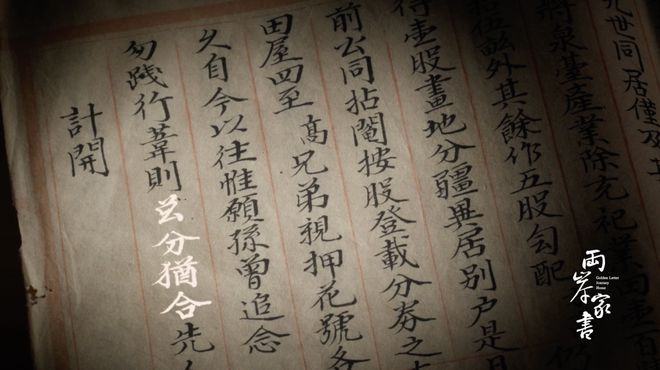 世同居僅及
將泉臺產業除充祀業田壹百
拾伍畝外其餘作五股勻配
待壹股畫地分疆異居別户是月
前公同拈鬮按股登載分券之
田屋四至 高兄弟親押花號各
久自今以往惟願孫曾追念
勿踐行葦則分猶合先
計開
兩岸家書
Golden Letter
Journey
Home